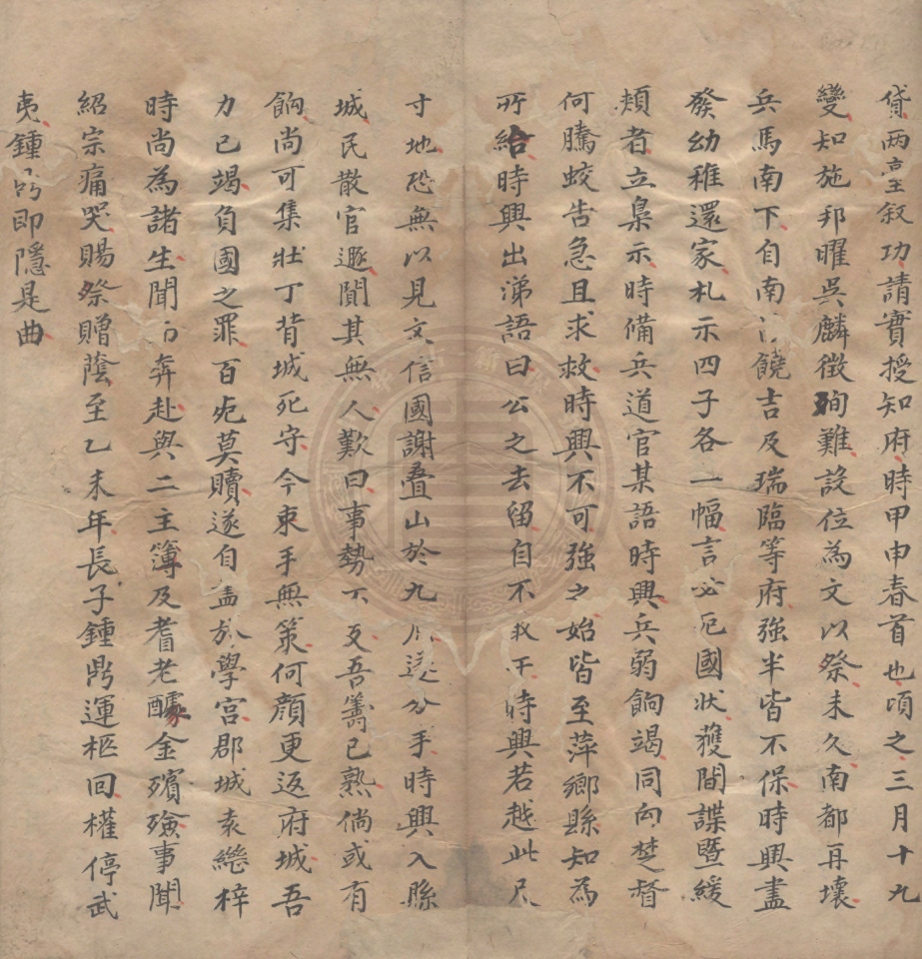 貸两臺叙功請實授知府時甲申春首也頃之三月十九
變知施邦曜吳麟徵殉難設位為文以祭未久南都再壞
兵馬南下自南饒吉及瑞臨等府強半皆不保時興盡
發幼稚還家札示四子各一幅言必死國状獲間諜暨緩
頰者立梟示時備兵道官某語時興兵弱餉竭同向楚督
何騰蛟告急且求救時興不可強之始皆至萍鄉縣知為
所紿時興出涕語曰公之去留自不敢干時興若越此尺
寸地恐無以見文信國謝叠山於九原遂分手時興入縣
城民散官遯閴其無人歎曰事勢不支吾籌已熟倘或有
餉尚可集壯丁背城死守今束手無策何顔更返府城吾
力已竭負國之罪百死莫贖遂自盡於學宮郡城袁繼梓
時尚為諸生聞而奔赴與二主簿及耆老醵金殯殮事聞
紹宗痛哭賜祭贈蔭至乙未年長子鍾鼎運柩回櫂停武
夷鍾鼎即隱是曲